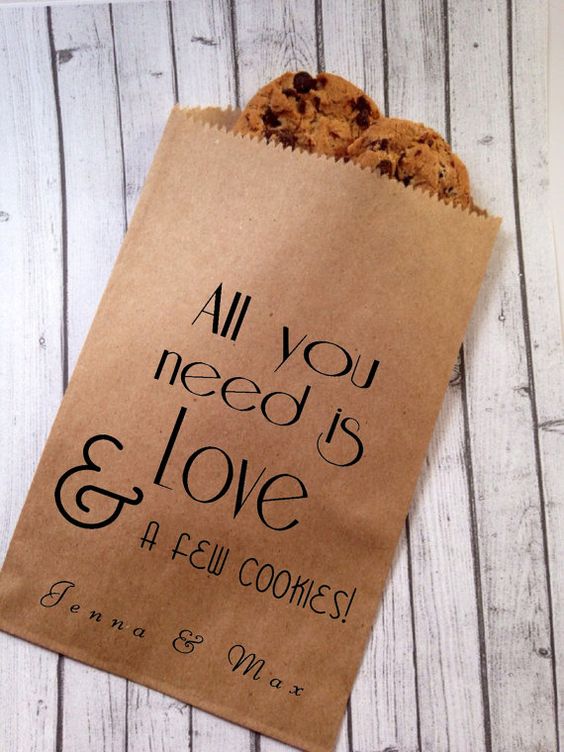 All you
need is
Love
& A FEW COOKIES!
Jenna & Max